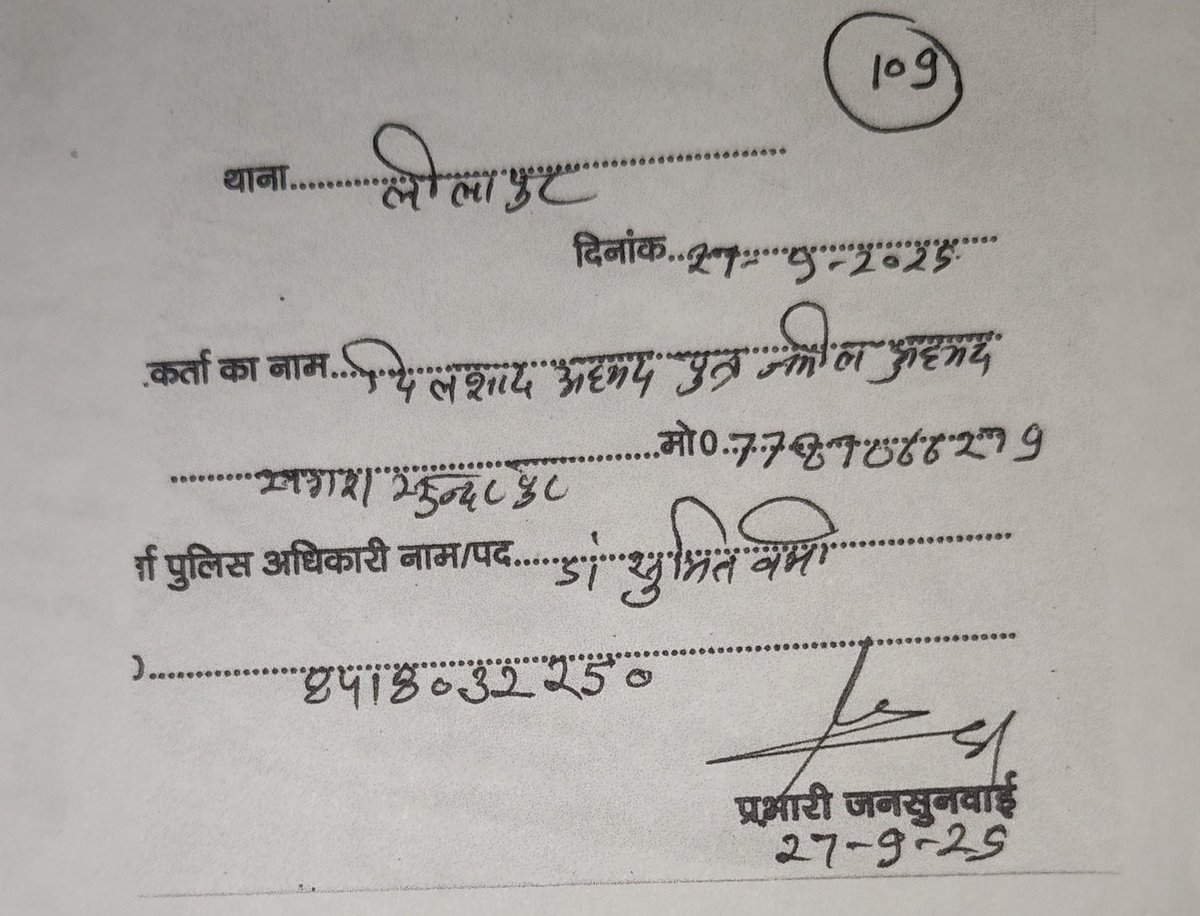 109
थाना लीलापुर
दिनांक 27-9-2025
कर्ता का नाम दिलशाद अहमद पुत्र जमील अहमद
मो0.
सुन्दरपुर
र्ग पुलिस अधिकारी नाम/पद डॉ सुमित वर्मा
8418032250
प्रभारी जनसुनवाई
27-9-25